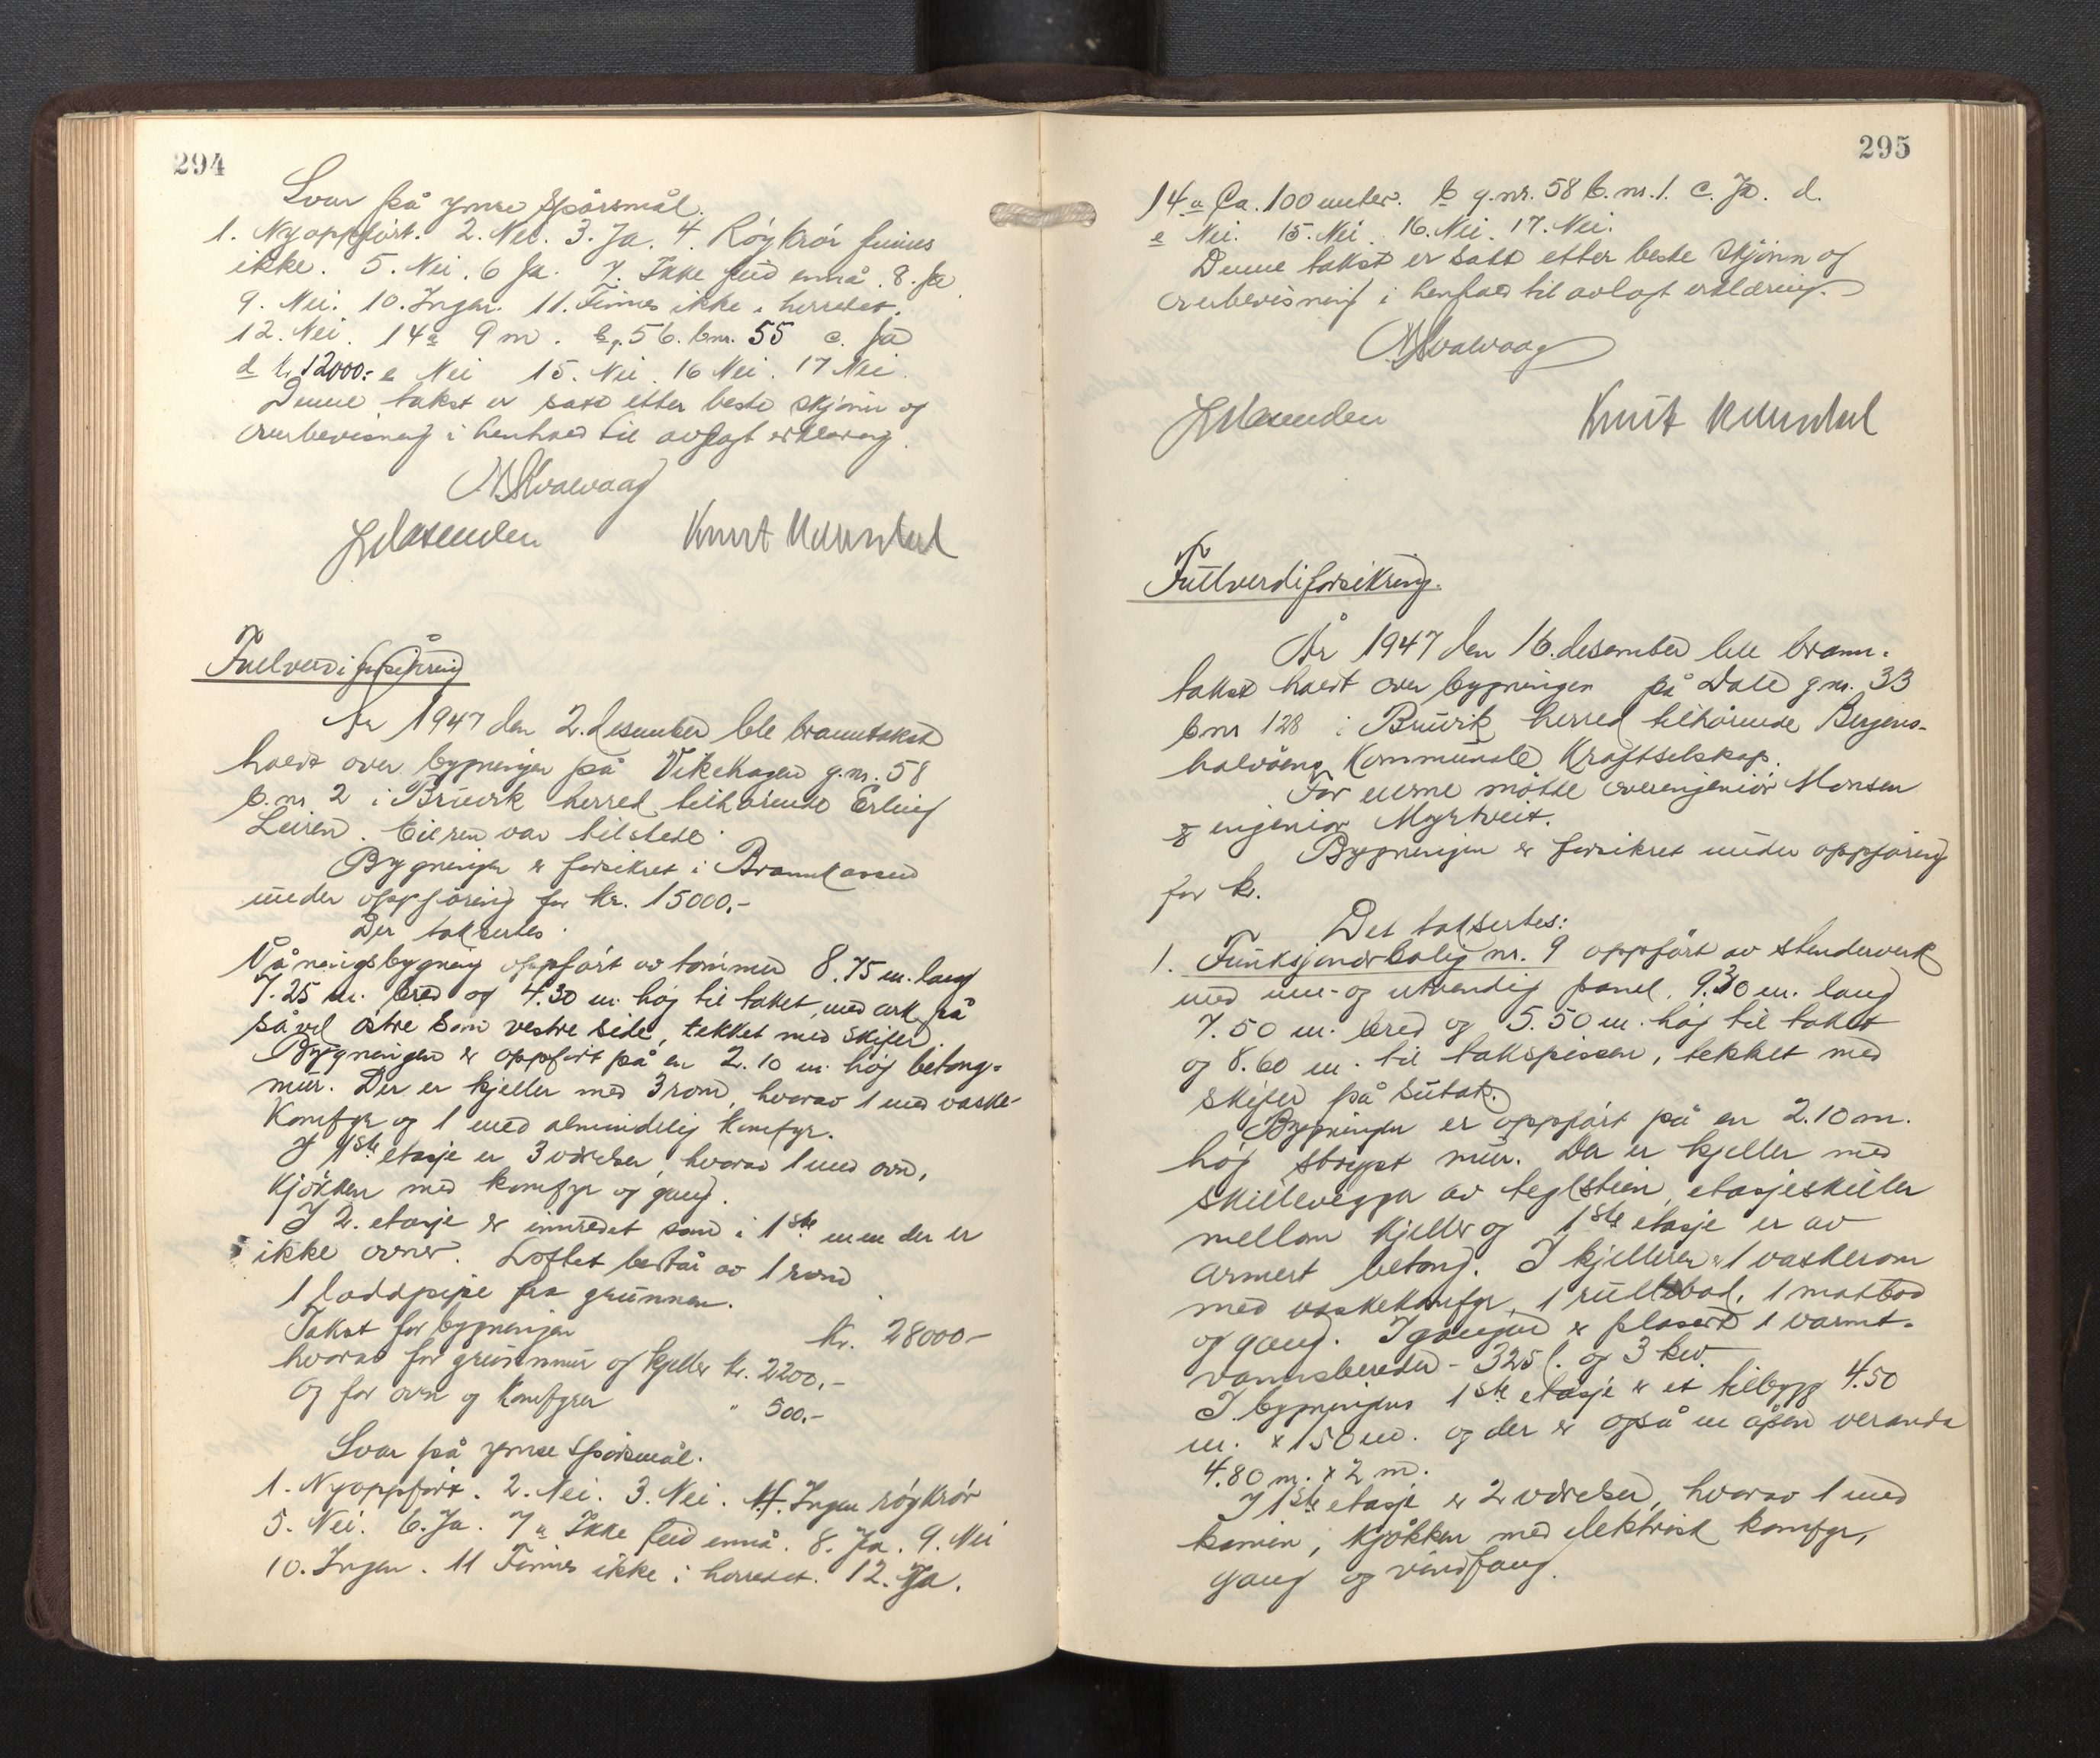 294
Svar på ymse spörsmål.
1. Nyoppfört. 2. Nei. 3. Ja. 4. Röykrör finnes
ikke. 5. Nei. 6 Ja. 7. Ikke feid ennå. 8. Ja
9. Nei. 10. Ingen. 11. Finnes ikke i herredet.
12. Nei. 14a 9 m. b g. 56. bnr. 55 c. Ja
d kr 12000:- e Nei 15. Nei. 16 Nei. 17 Nei.
Denne takst er satt etter beste skjönn og
overbevisning i henhold til avlagt erklæring.
Knut
Fullverdiforsikring
År 1947 den 2. desember ble branntakst
holdt over bygningen på Vikehagen g.nr. 58
b.nr. 2 i Bruvik herred tilhörende Erling
Leiren. Eieren var tilstede.
Bygningen er forsikret i Brannkassen
under oppföring for kr. 15000,-
Der taksertes.
Våningsbygning oppfört av tömmer 8.75 m. lang
7.25 m. bred og 4.30 m. höy til taket, med ark på
såvel östre som vestre side, tekket med skifer.
Bygningen er oppfört på en 2.10 m. höy betong-
mur. Der er kjeller med 3 rom, hvorav 1 med vaske-
komfyr og 1 med almindelig komfyr.
I 1ste etasje er 3 værelser, hvorav 1 med ovn,
kjökken med komfyr og gang.
I 2. etasje er innredet som i 1ste men der er
ikke ovner. Loftet består av 1 rom
1 loddpipe fra grunnen.
Takst for bygningen kr. 28000-
hvorav for grunnmur og kjeller kr. 2200,-
og for ovn og komfyrer " 500,-
Svar på ymse spörsmål.
1. Nyoppfört. 2. Nei. 3. Nei. 4. Ingen röykrör
5. Nei. 6. Ja. 7a Ikke feid ennå. 8. Ja. 9. Nei
10. Ingen. 11 Finnes ikke i herredet. 12. Ja.
295
14a Ca. 100 meter. b g.nr. 58 b.nr. 1. c. Ja. d.
e Nei. 15. Nei. 16. Nei. 17. Nei.
Denne takst er satt etter beste skjönn og
overbevisning i henhold til avlagt erklæring.
Knut
Fullverdiforsikring.
År 1947 den 16. desember ble brann-
takst holdt over bygningen på Dale g.nr. 33
bnr 128 i Bruvik herred tilhörende Bergens-
halvöens Kommunale Kraftselskap.
For eierne mötte overingeniör Monsen
og ingeniör Myrtveit.
Bygningen er forsikret under oppföring
for kr.
Det taksertes:
1. Funksjonærbolig nr. 9 oppfört av stenderverk
med inn- og utvendig panel. 9.30 m. lang
7.50 m. bred og 5.50 m. höy til taket
og 8.60 m. til takspissen, tekket med
skifer på sutak.
Bygningen er oppfört på en 2.10 m.
höy støypt mur. Der er kjeller med
skillevegger av teglstein, etasjeskiller
mellom kjeller og 1ste etasje er av
armert betong. I kjelleren er 1 vaskerom
med vaskekomfyr, 1 rullebod, 1 matbod
og gang. I gangen er plasert 1 varmt-
vannsbereder - 325 l. og 3 kw.
I bygningens 1ste etasje er et tilbygg 4.50
m. x 1.50 m. og der er også en åpen veranda
4.80 m. x 2 m.
I 1ste etasje er 2 værelser, hvorav 1 med
kamin, kjökken med elektrisk komfyr,
gang og vindfang.